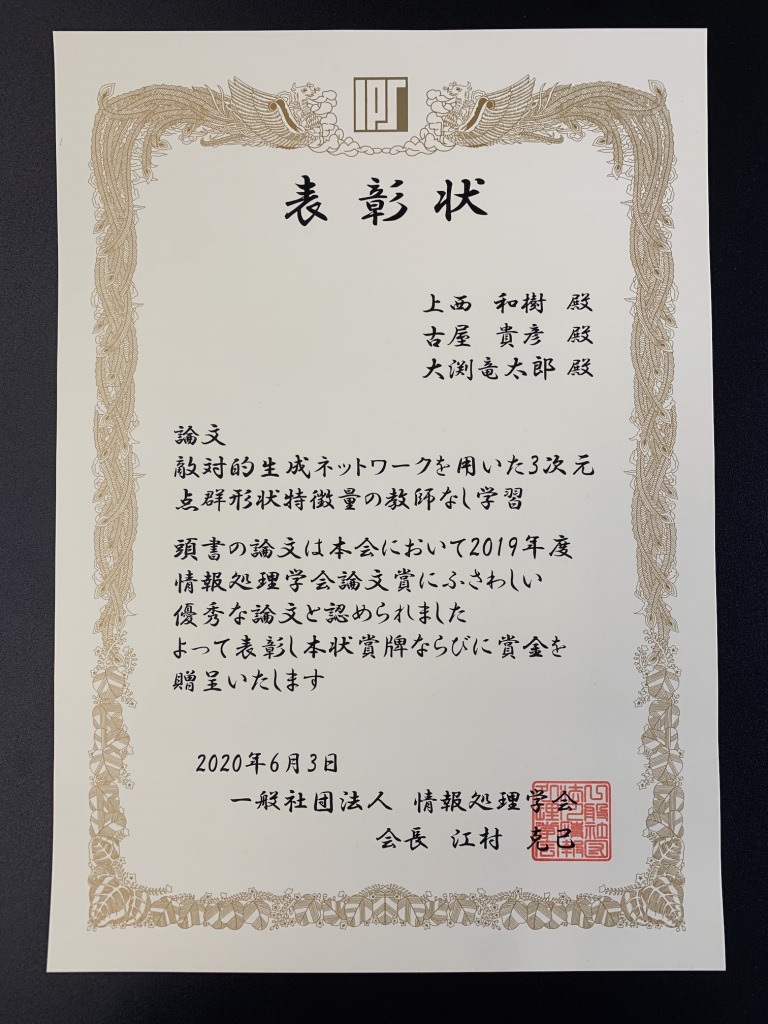 IPS
表彰状
上西 和樹 殿
古屋 貴彦 殿
大渕竜太郎 殿
論文
敵対的生成ネットワークを用いた3次元
点群形状特徴量の教師なし学習
頭書の論文は本会において2019年度
情報処理学会論文賞にふさわしい
優秀な論文と認められました
よって表彰し本状賞牌ならびに賞金を
贈呈いたします
2020年6月3日
一般社団法人 情報処理学会
会長 江村 克己